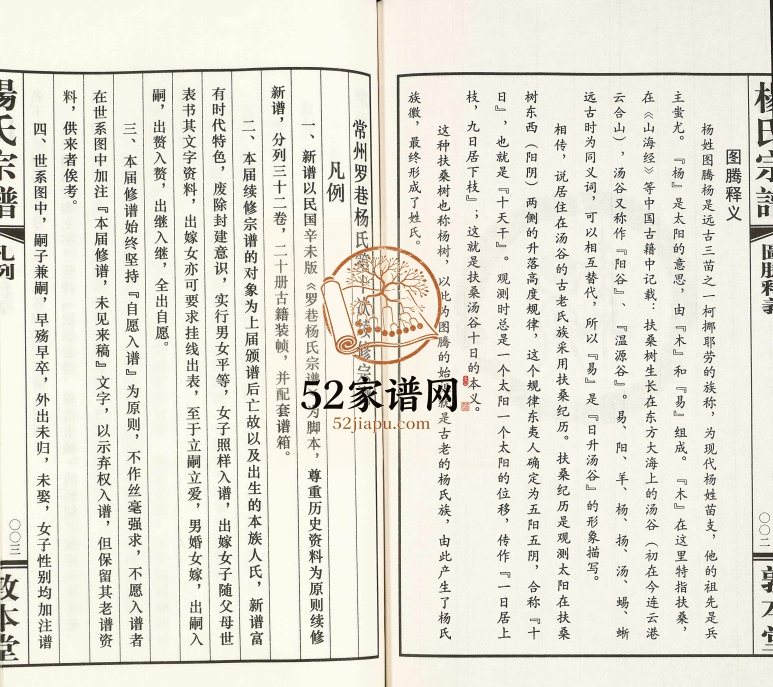 杨氏宗谱
图腾释义
〇〇二
敦本堂
图腾释义
杨姓图腾杨是远古三苗之一柯挪耶劳的族称，为现代杨姓苗支，他的祖先是兵
主蚩尤。『杨』是太阳的意思，由『木』和『易』组成。『木』在这里特指扶桑，
在《山海经》等中国古籍中记载：扶桑树生长在东方大海上的汤谷（初在今连云港
云台山），汤谷又称作『阳谷』、『温源谷』。易、阳、羊、杨、扬、汤、蜴、蜥
远古时为同义词，可以相互替代，所以『易』是『日升汤谷』的形象描写。
相传，说居住在汤谷的古老氏族采用扶桑纪历。扶桑纪历是观测太阳在扶桑
树东西（阳阴）两侧的升落高度规律，这个规律东夷人确定为五阳五阴，合称『十
日』，也就是『十天干』。观测时总是一个太阳一个太阳的位移，传作『一日居上
枝，九日居下枝』；这就是扶桑汤谷十日的本义。
这种扶桑树也称杨树，以此为图腾的始祖就是古老的杨氏族，由此产生了杨氏
族徽，最终形成了姓氏。
常州罗巷杨氏续修宗
凡例
一、新谱以民国辛未版《罗巷杨氏宗谱》为脚本，尊重历史资料为原则续修
新谱，分列三十二卷，二十册古籍装帧，并配套谱箱。
二、本届续修宗谱的对象为上届颁谱后亡故以及出生的本族人氏，新谱富
有时代特色，废除封建意识，实行男女平等，女子照样入谱，出嫁女子随父母世
表书其文字资料，出嫁女亦可要求挂线出表，至于立嗣立爱，男婚女嫁，出嗣入
嗣，出赘入赘，出继入继，全出自愿。
三、本届修谱始终坚持『自愿入谱』为原则，不作丝毫强求，不愿入谱者
在世系图中加注『本届修谱，未见来稿』文字，以示弃权入谱，但保留其老谱资
料，供来者俟考。
四、世系图中，嗣子兼嗣，早殇早卒，外出未归，未娶，女子性别均加注谱
杨氏宗谱
凡例
〇〇三
敦本堂
52家谱网
52jiapu.com